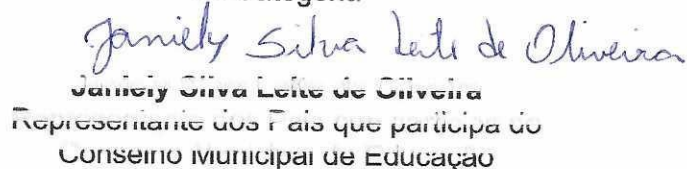 Janiely Silva Leite de Oliveira
Janiely Silva Leite de Oliveira
Representante dos Pais que participa do
Conselho Municipal de Educação